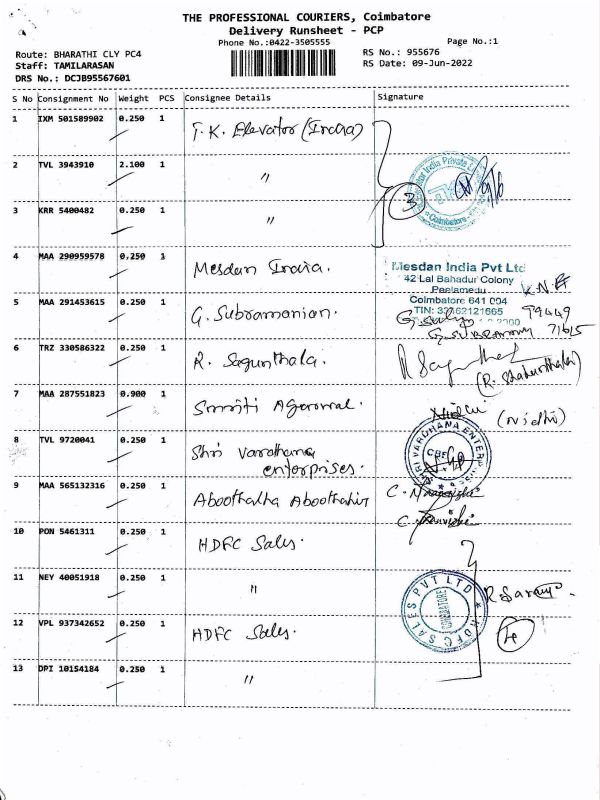 THE PROFESSIONAL COURIERS, Coimbatore
Delivery Runsheet - PCP
Phone No.:0422-3505555
Page No.:1
Route: BHARATHI CLY PC4
RS No.: 955676
Staff: TAMILARASAN
RS Date: 09-Jun-2022
DRS No.: DCJB95567601
S No Consignment No Weight PCS Consignee Details Signature
1 IXM 501589902 0.250 1 T.K. Elevator (India)
2 TVL 3943910 2.100 1 "
3 KRR 5400482 0.250 1 "
3
Coimbatore
4 MAA 290959578 0.250 1 Mesdan India.
Mesdan India Pvt Ltd
42 Lal Bahadur Colony
Peelamedu
Coimbatore 641 004
5 MAA 291453615 0.250 1 G. Subramanian.
99449
71615
6 TRZ 330586322 0.250 1 R. Sagunthala.
(R. Shakunthala)
7 MAA 287551823 0.900 1 Smriti Agarwal.
(Nidhi)
8 TVL 9720041 0.250 1 Shri Vardhana
enterprises.
SHRI VARDHANA ENTER
CBE
9 MAA 565132316 0.250 1 Aboothalha Aboothahir
10 PON 5461311 0.250 1 HDFC Sales.
11 NEY 40051918 0.250 1 "
HDFC SALES PVT LTD
COIMBATORE
12 VPL 937342652 0.250 1 HDFC Sales.
4
13 DPI 10154184 0.250 1 "